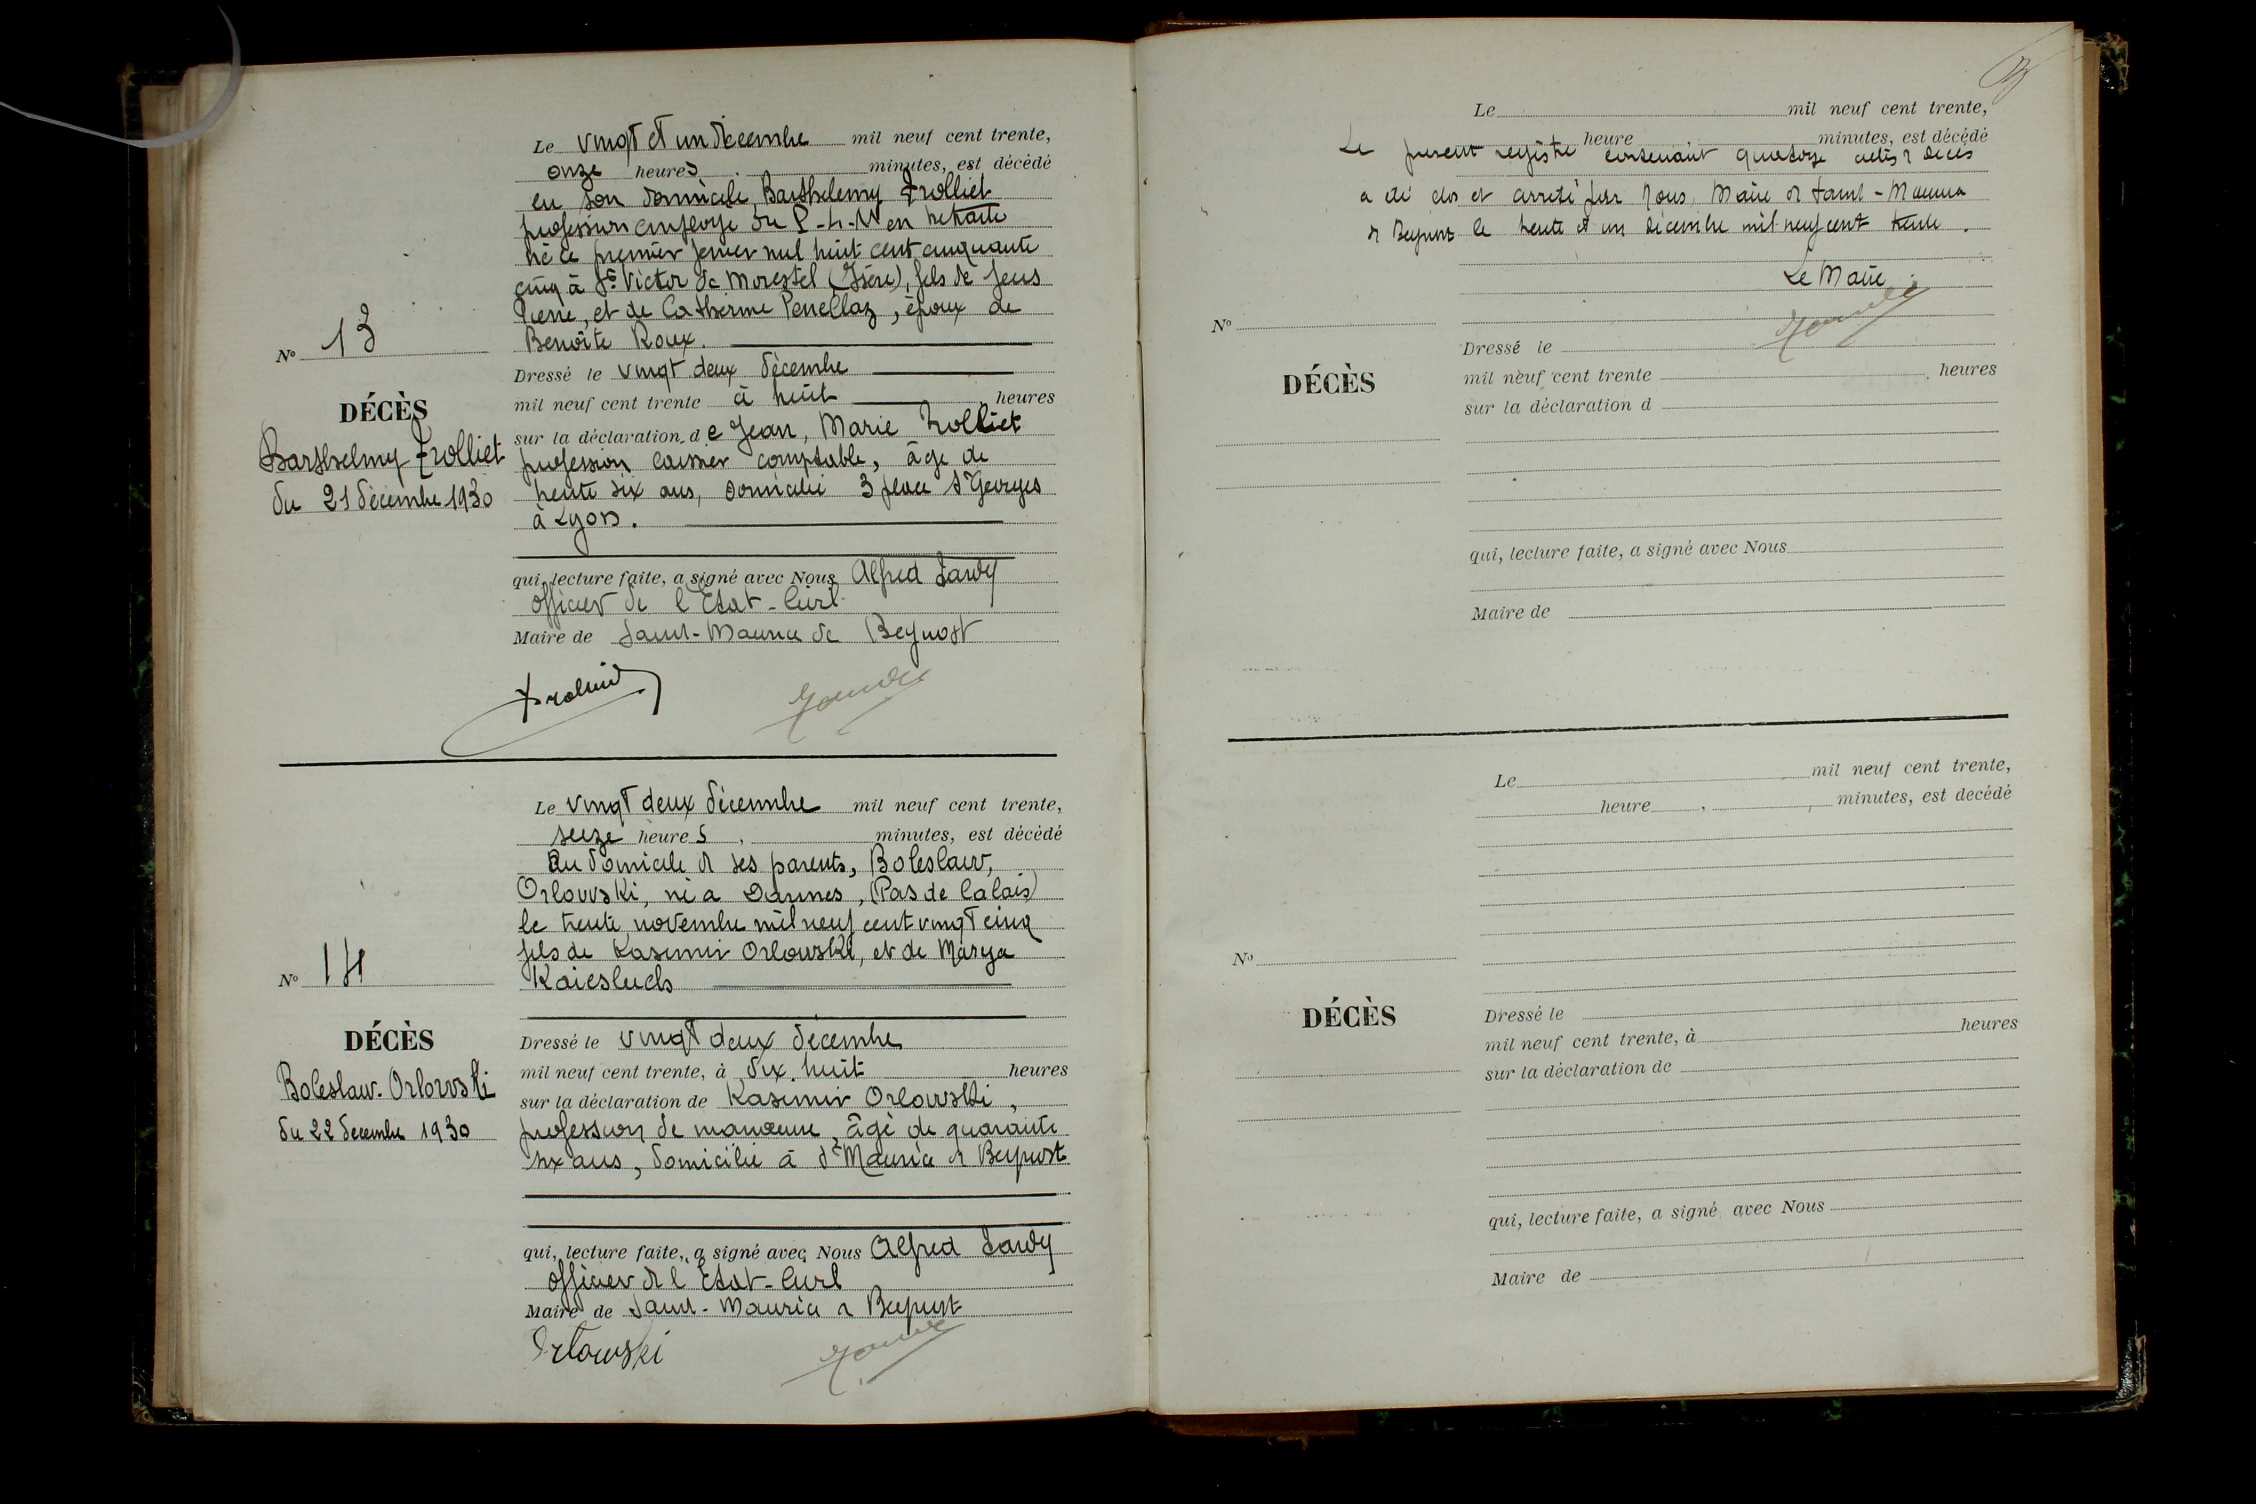 Le vingt et un décembre mil neuf cent trente,
onze heures minutes, est décédé
en son domicile, Barthelemy Trolliet
profession employé du P-L-M en retraite
né le premier janvier mil huit cent cinquante
cinq à St Victor de Morestel (Isère), fils de feus
Pierre, et de Catherine Penellaz, époux de
Benoîte Roux.
No 13
Dressé le vingt deux décembre
mil neuf cent trente à huit heures
DÉCÈS
Barthelmy Trolliet
du 21 décembre 1930
sur la déclaration de Jean, Marie Trolliet
profession caissier comptable, âgé de
trente six ans, domicilié 3 place St Georges
à Lyon.
qui, lecture faite, a signé avec Nous Alfred
officier de l'Etat-Civil
Maire de Saint-Maurice de Beynost
Le vingt deux décembre mil neuf cent trente,
seize heures, minutes, est décédé
au domicile de ses parents, Boleslaw,
Orlowski, né à Dannes, (Pas de Calais)
le trente novembre mil neuf cent vingt cinq
fils de Kasimir Orlowski, et de Marya
No 14
DÉCÈS
Boleslaw. Orlowski
du 22 decembre 1930
Dressé le vingt deux décembre
mil neuf cent trente, à dix huit heures
sur la déclaration de Kasimir Orlowski,
profession de manœuvre, âgé de quarante
six ans, domicilié à St Maurice de Beynost
qui, lecture faite, a signé avec Nous Alfred
officier de l'Etat-Civil
Maire de Saint-Maurice de Beynost
Orłowski
Le mil neuf cent trente,
heure, minutes, est décédé
Le présent registre contenant quatorze actes de décès
a été clos et arrêté par Nous, Maire de Saint-Maurice
de Beynost le trente et un décembre mil neuf cent trente.
Le Maire
No
DÉCÈS
Dressé le
mil neuf cent trente heures
sur la déclaration d
qui, lecture faite, a signé avec Nous
Maire de
Le mil neuf cent trente,
heure, minutes, est decédé
No
DÉCÈS
Dressé le
mil neuf cent trente, à heures
sur la déclaration de
qui, lecture faite, a signé avec Nous
Maire de